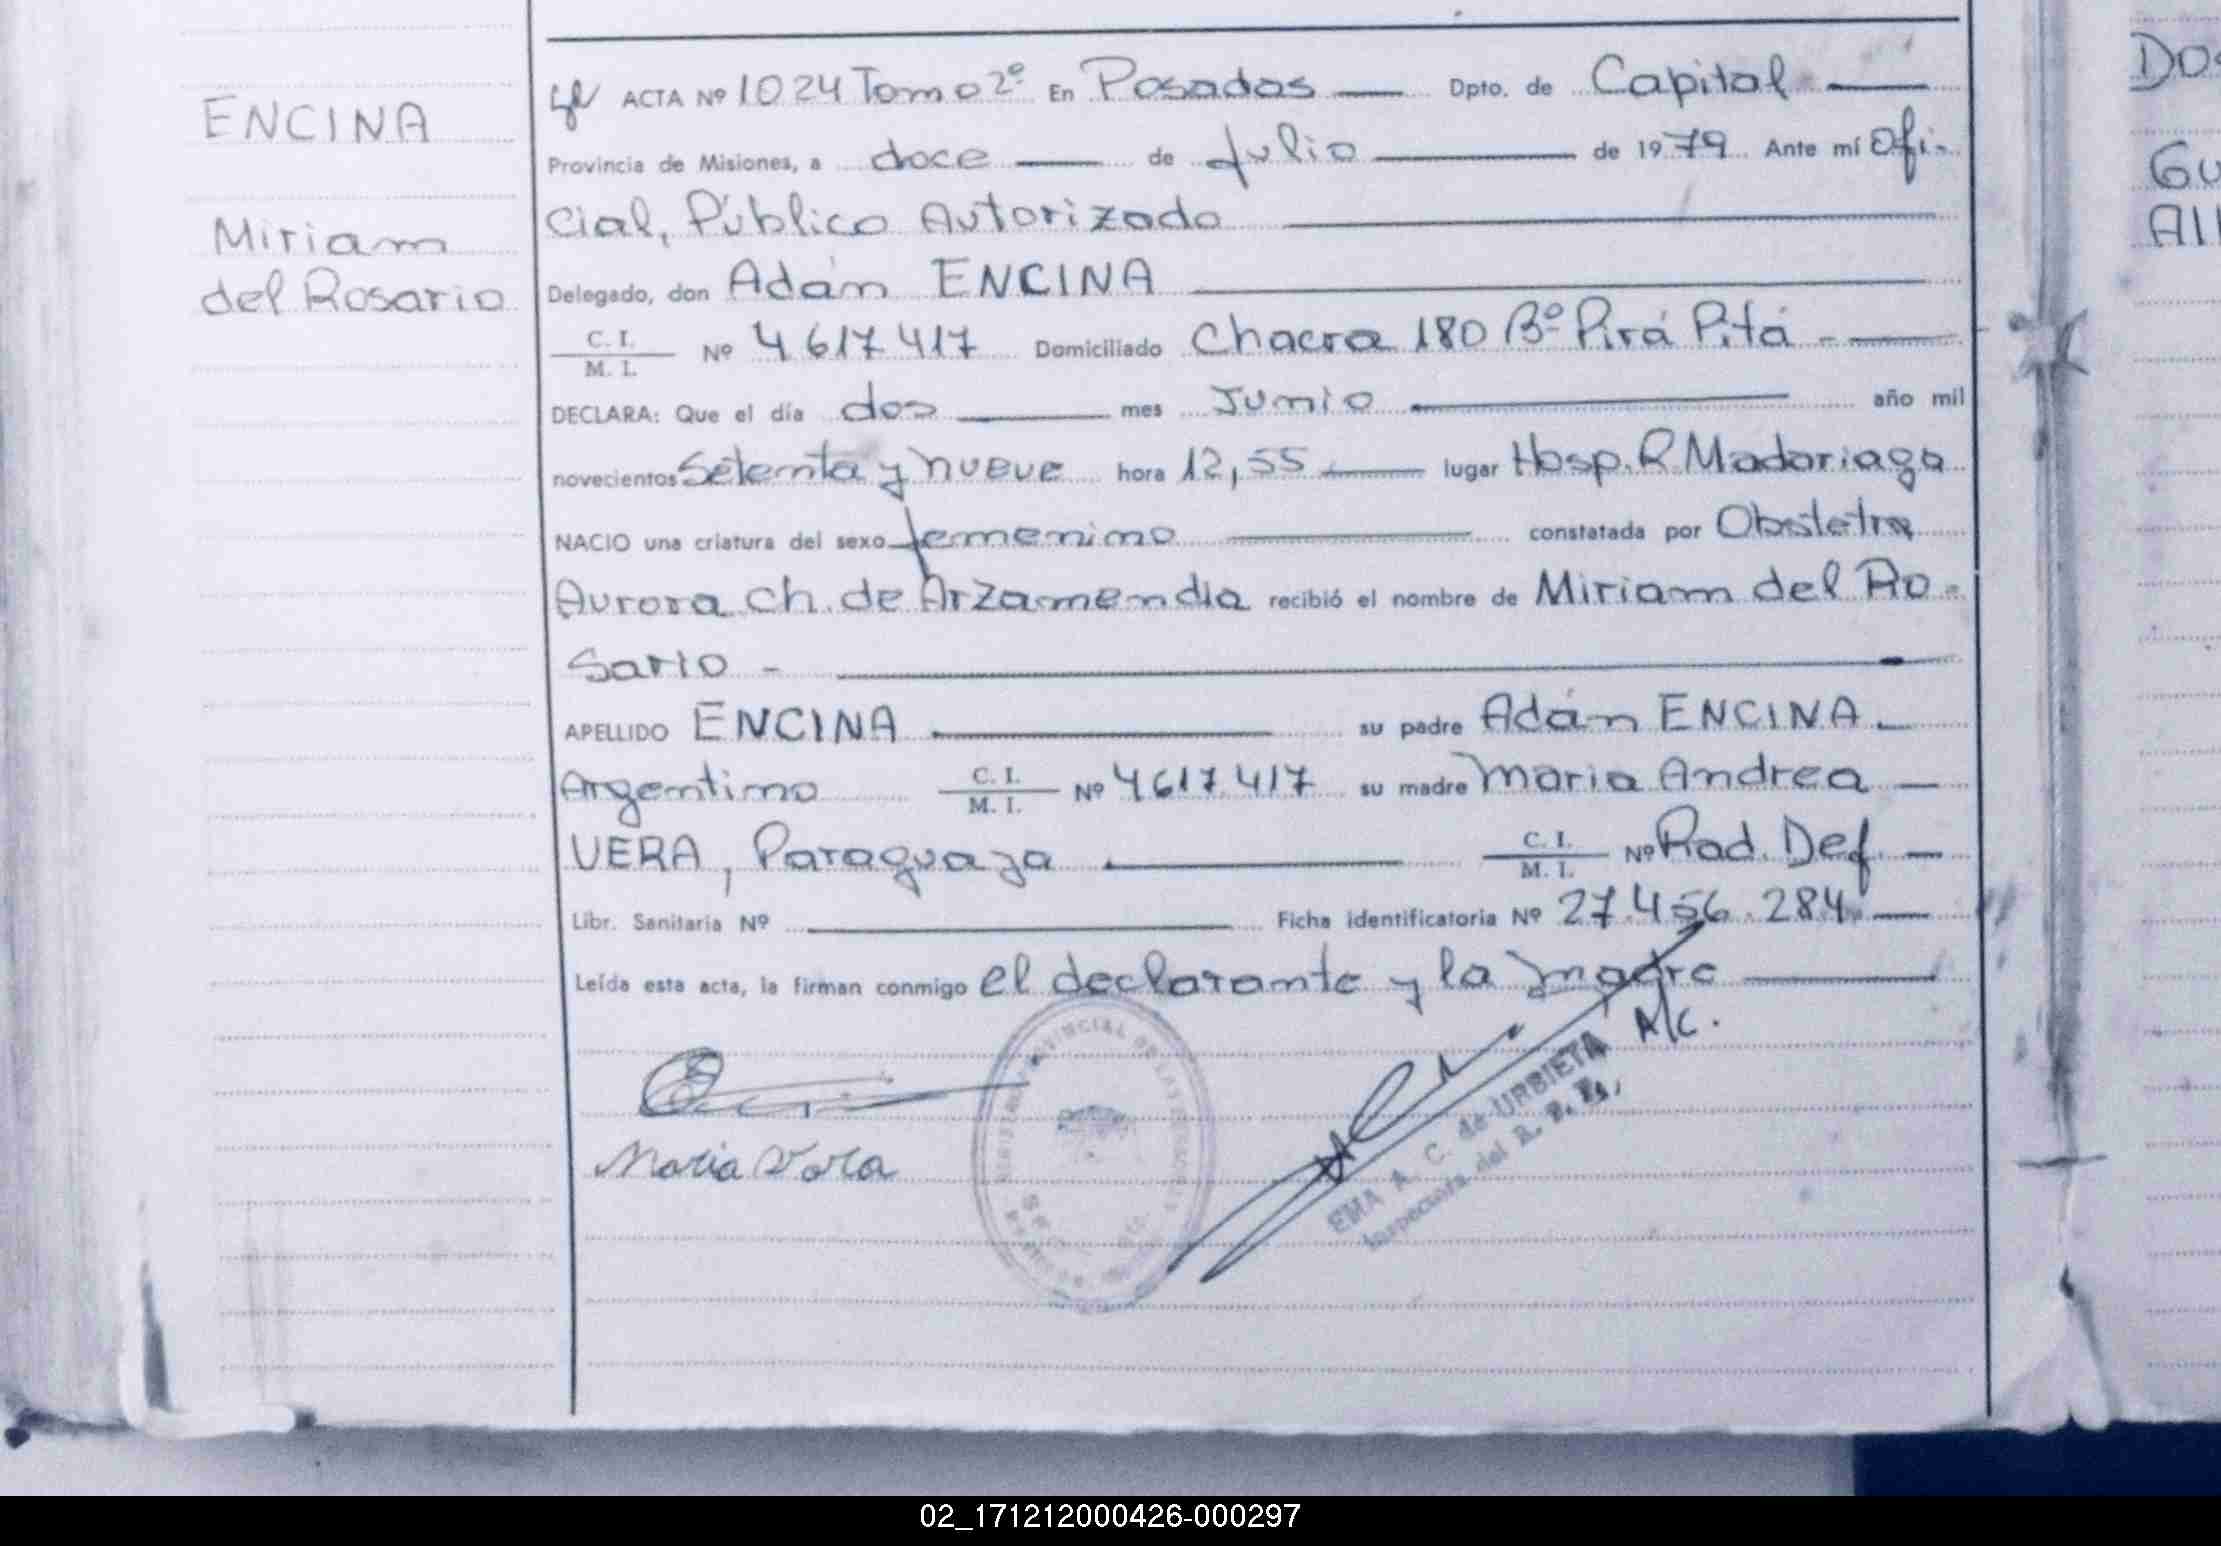 ENCINA
Miriam
del Rosario
ACTA Nº 1024 Tomo 2º En Posadas Dpto. de Capital
Provincia de Misiones, a doce de Julio de 1979 Ante mí Ofi-
cial, Público Autorizado
Delegado, don Adán ENCINA
C. I.
M. I.
Nº 4617417 Domiciliado Chacra 180 Bº Pirá Pitá -
DECLARA: Que el día dos mes Junio año mil
novecientos Setenta y nueve hora 12,55 lugar Hosp. R Madariaga
NACIO una criatura del sexo femenino constatada por Obstetra
Aurora Ch. de Arzamendia recibió el nombre de Miriam del Ro-
sario -
APELLIDO ENCINA su padre Adán ENCINA
Argentino C. I.
M. I. Nº 4617417 su madre Maria Andrea
VERA, Paraguaya C. I.
M. I. Nº Rad. Def.
Libr. Sanitaria Nº Ficha identificatoria Nº 27.456.284
Leída esta acta, la firman conmigo el declarante y la madre
A/C.
Maria Vera
EMA A. C. de URBIETA
Inspectora del R. P. Ps,
DO
GU
Al
02_171212000426-000297